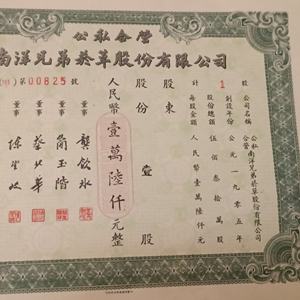 公私合營
南洋兄弟菸草股份有限公司
第00825號
公司名稱 公私合營南洋兄弟菸草股份有限公司
創設年份 公元一九〇五年
股份總額 伍佰叁拾萬股
每股金額 人民幣壹萬陸仟元
計 1 股
股東
股份 壹 股
人民幣 壹萬陸仟 元整
董事 龔飲冰
董事 簡玉階
董事
董事